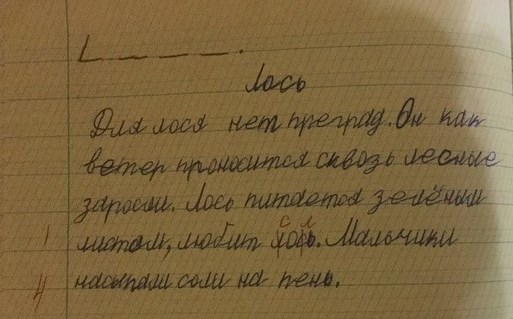 L _ _ _ _ .
Лось
Для лося нет преград. Он как
ветер проносится сквозь лесные
заросли. Лось питается зелёным
1 листом, любит соль. Мальчики
4 насыпали соли на пень.